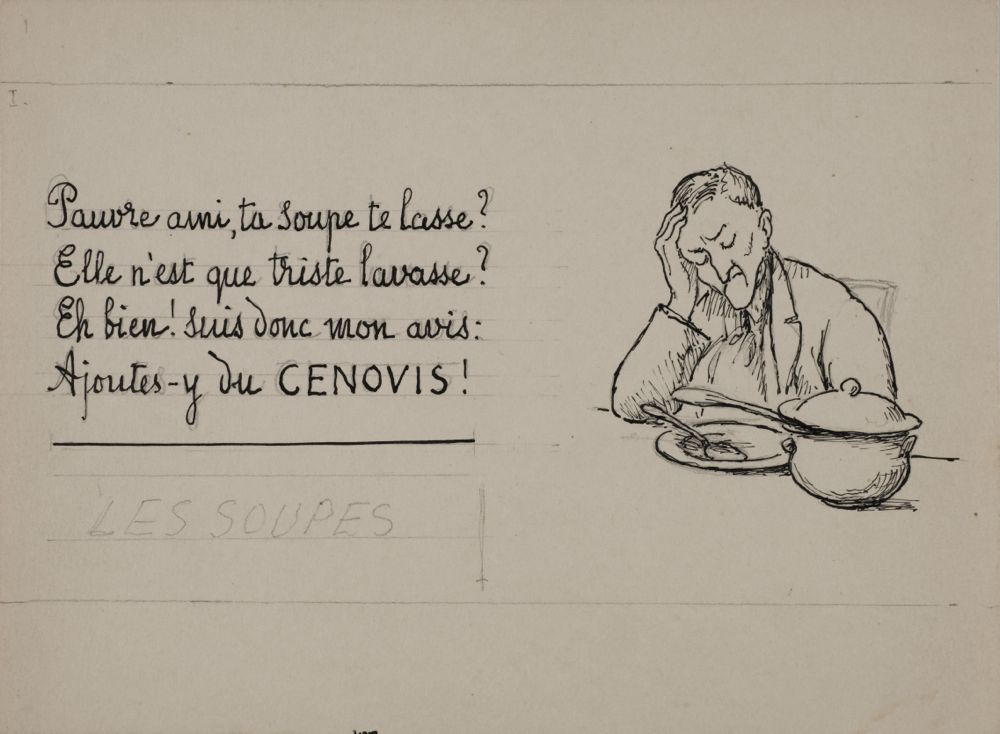 I.
Pauvre ami, ta soupe te lasse?
Elle n'est que triste lavasse?
Eh bien! suis donc mon avis:
Ajoutes-y du CENOVIS!
LES SOUPES